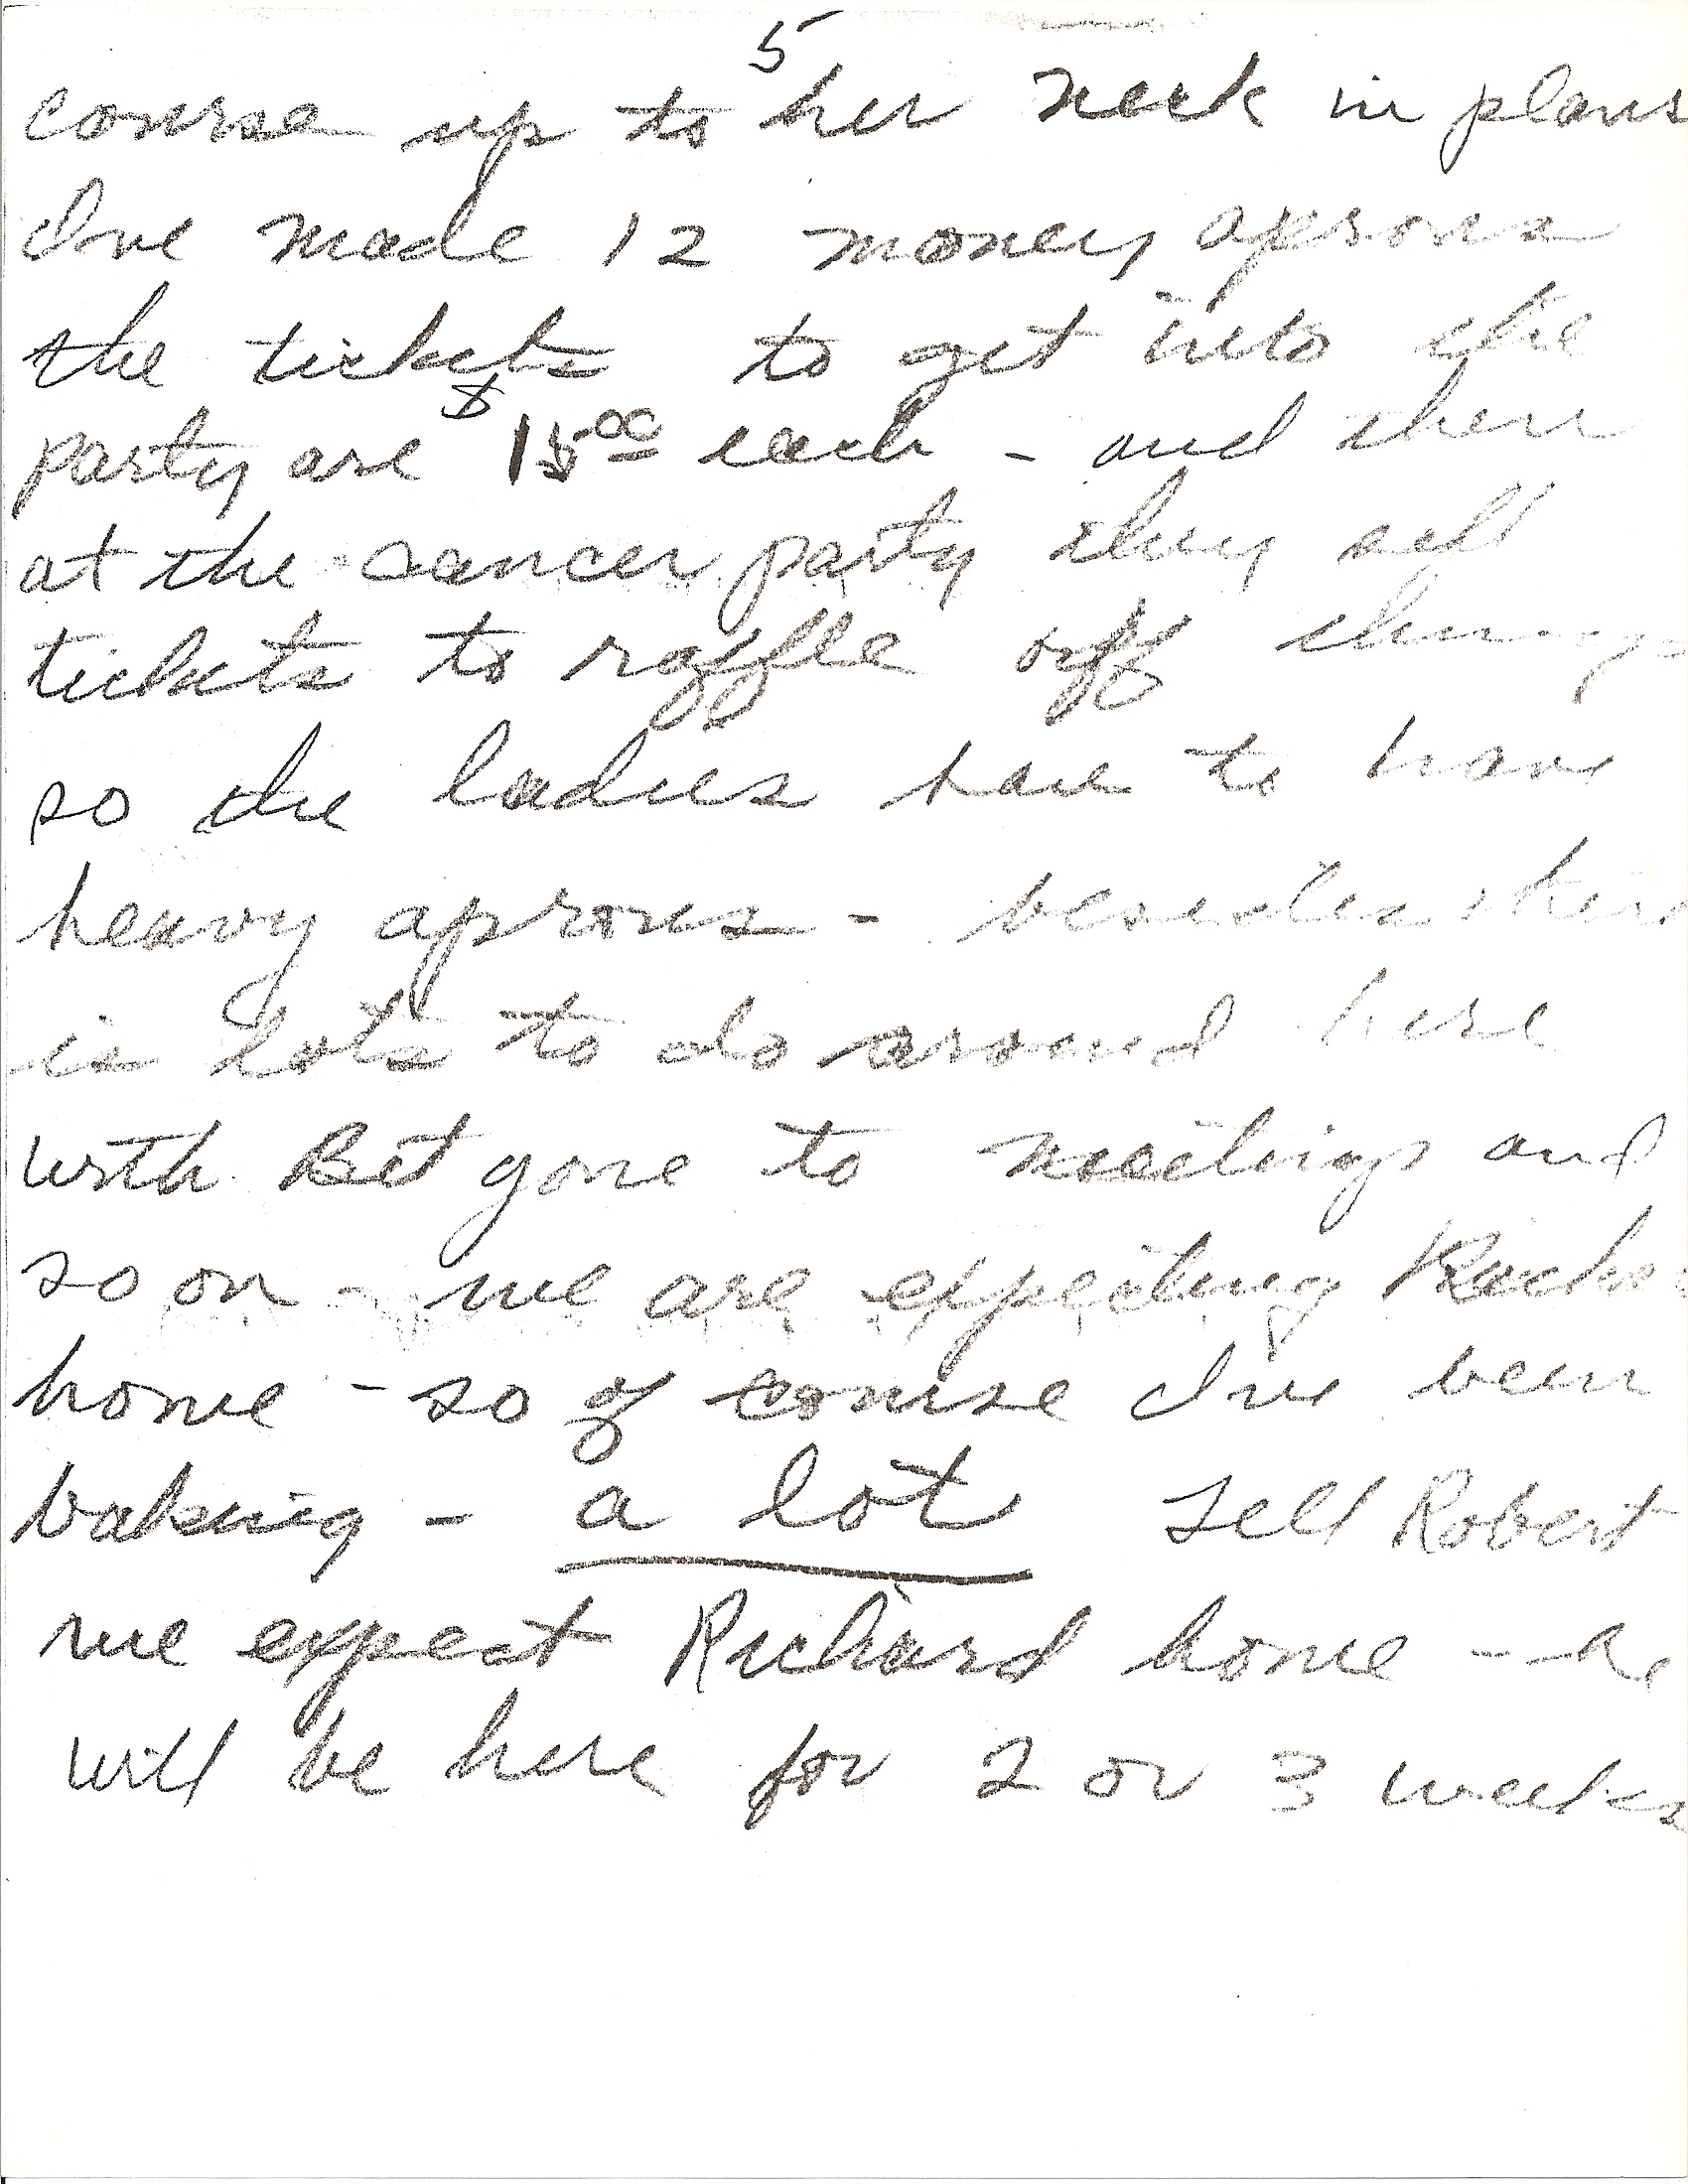 5
course up to her neck in plans
Ive made 12 money aprons
the tickets to get into the
party are $15.00 each - and then
at the cancer party they sell
tickets to raffle off things
so the ladies have to have
heavy aprons - besides there
is lots to do around here
with Bet gone to meetings and
so on - we are expecting Richar
home - so of course Ive been
baking - a lot Tell Robert
we expect Richard home -- he
will be here for 2 or 3 weeks